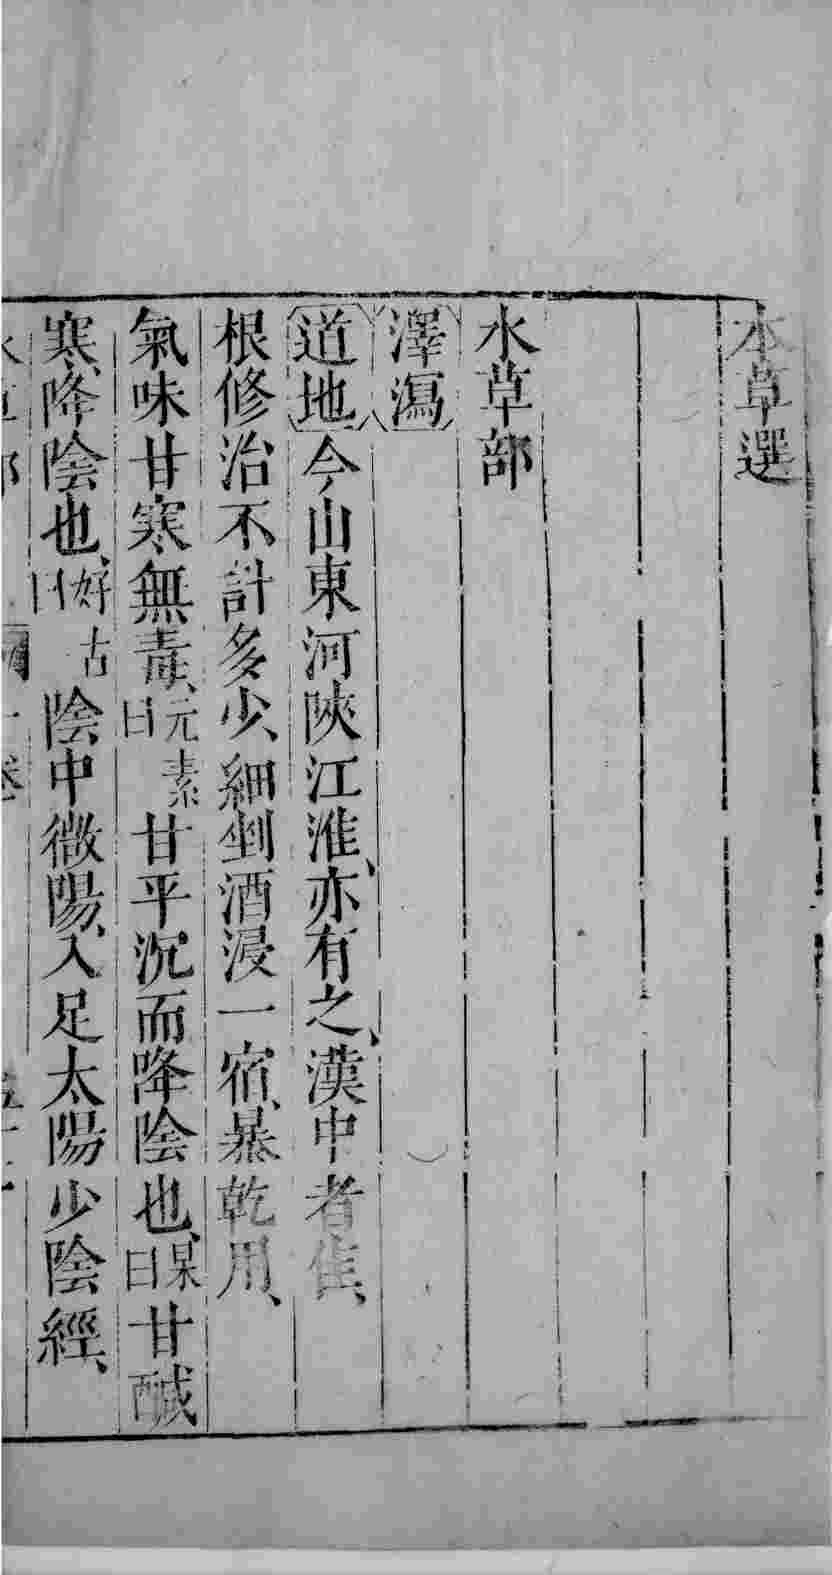 本草選
水草部
澤瀉
道地今山東河陝江淮、亦有之、漢中者佳、
根修治不計多少、細剉酒浸一宿、暴乾用、
氣味甘寒無毒、元素曰甘平沉而降陰也、杲曰甘鹹
寒、降陰也、好古曰陰中微陽、入足太陽少陰經、